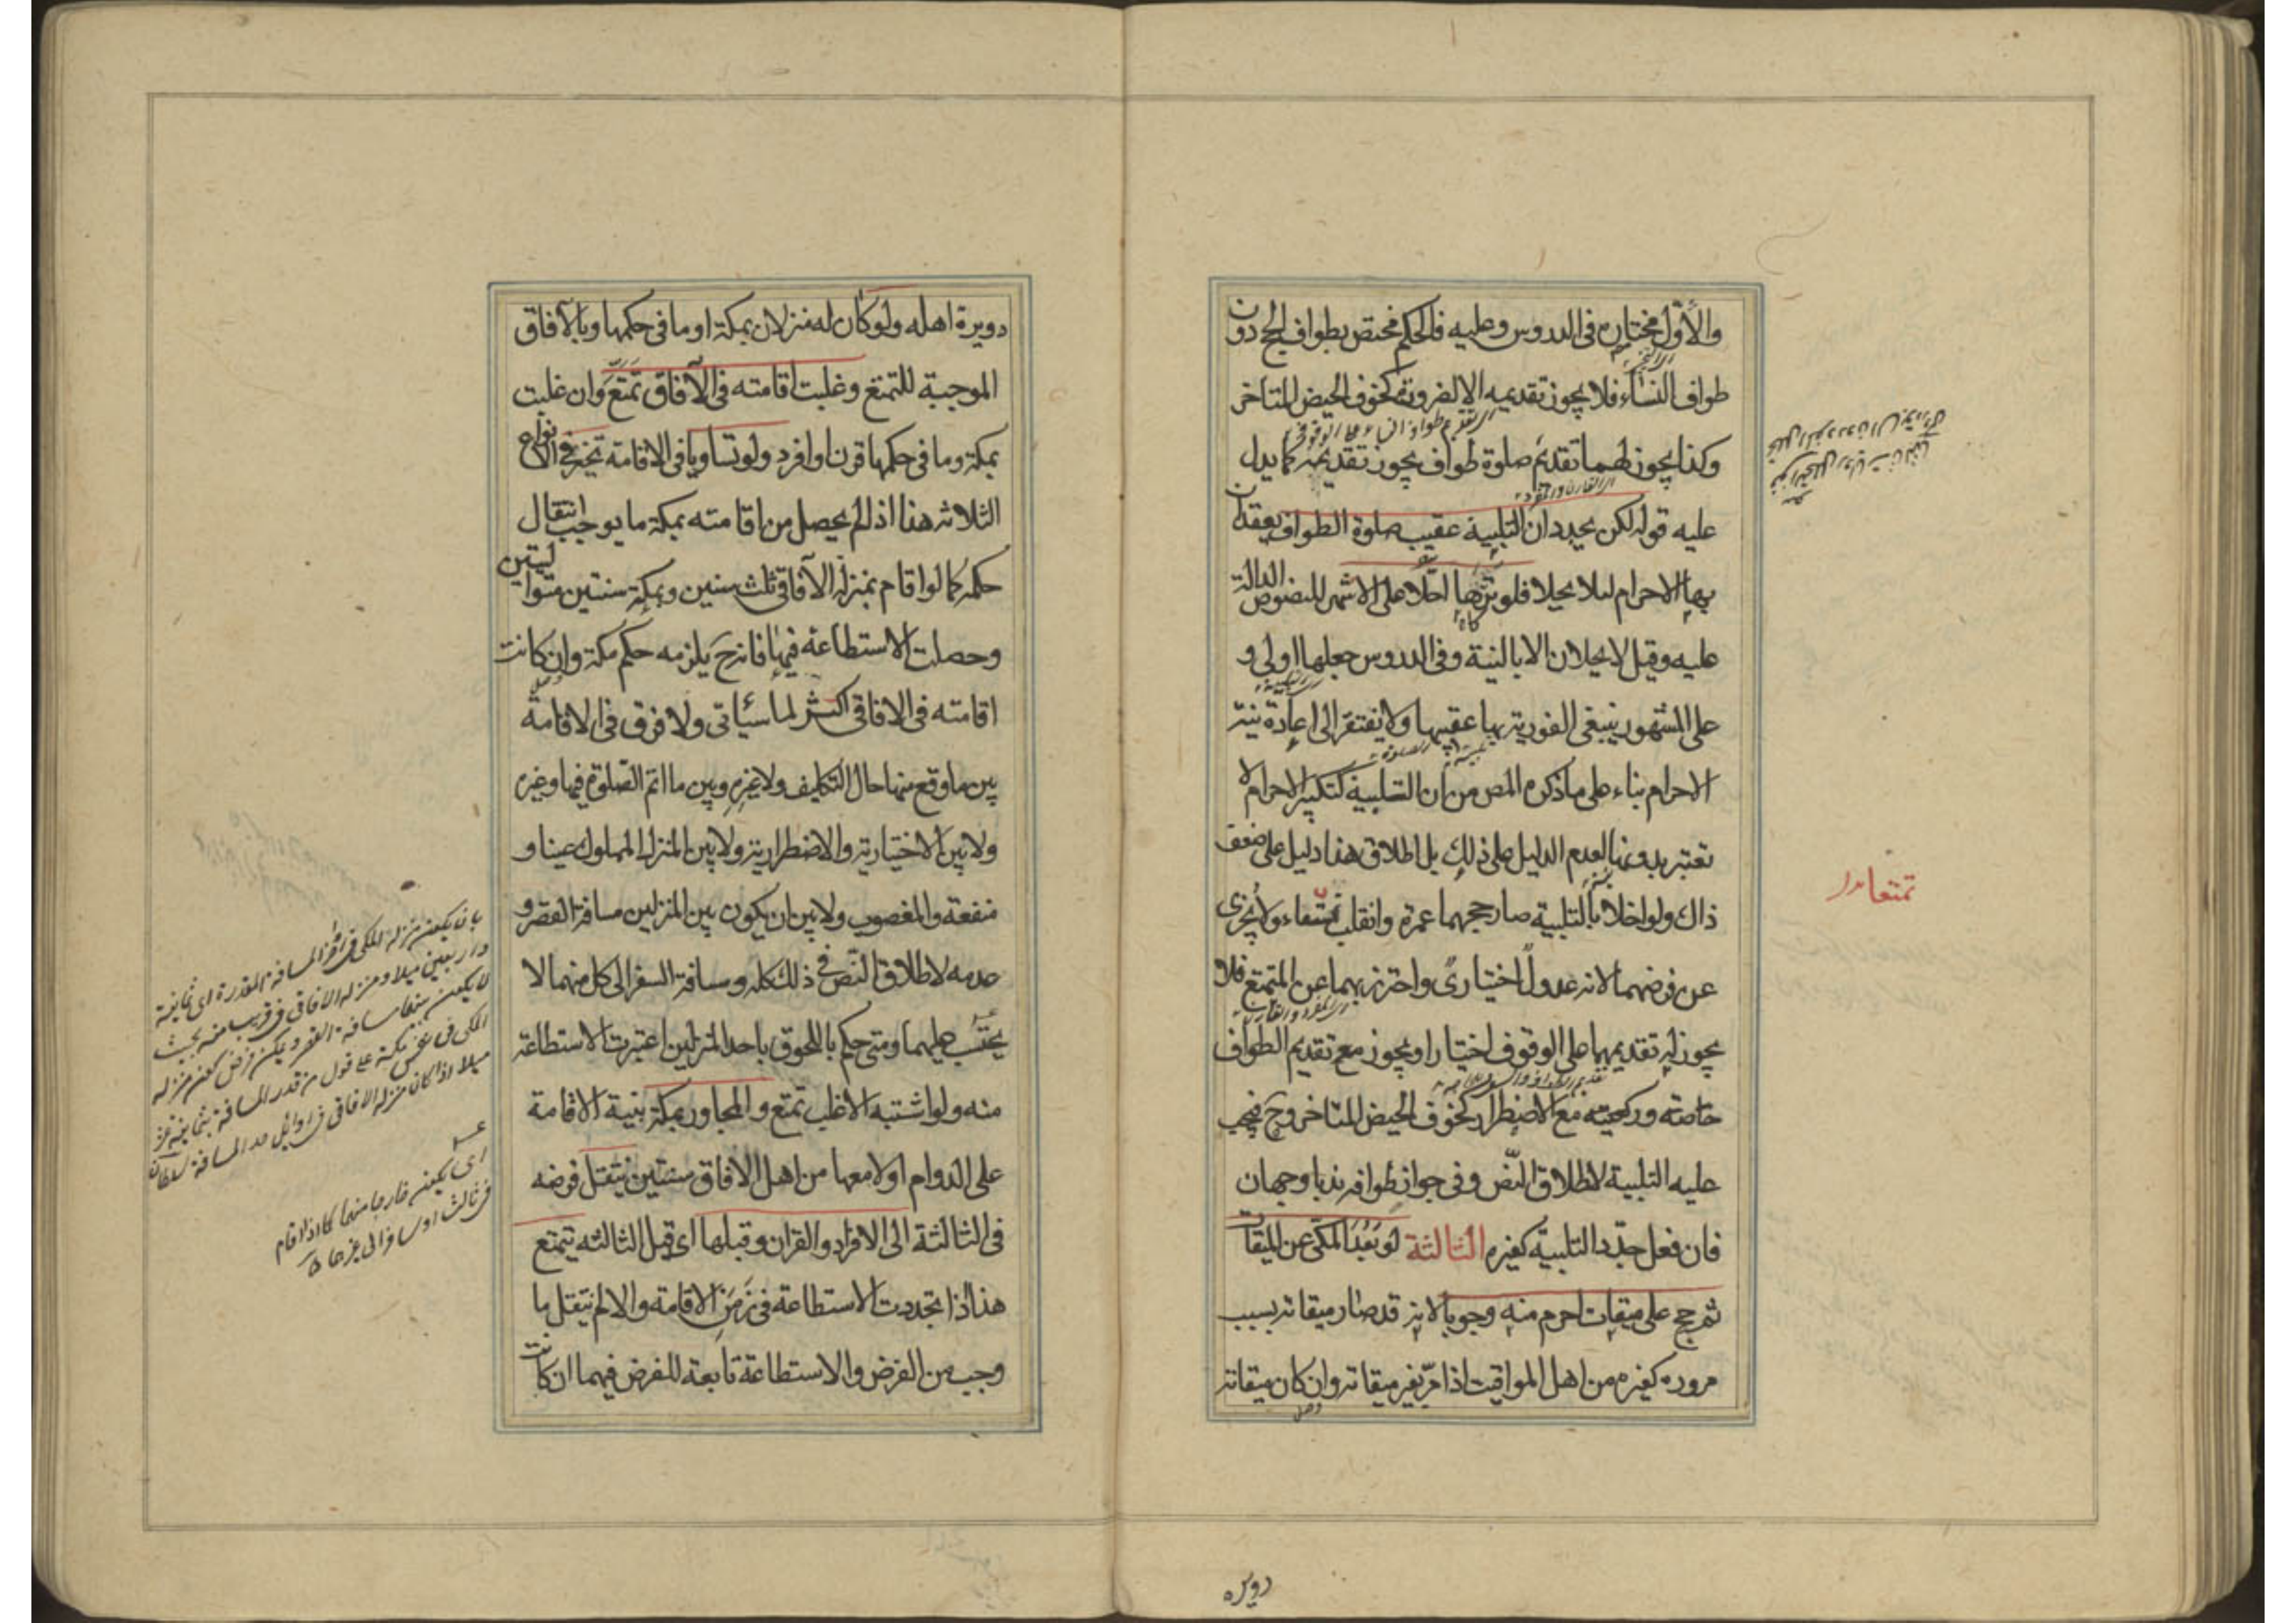 والأوّل مختاره في الدروس وعليه فالحكم مختص بطواف الحج دون
طواف النساء فلا يجوز تقديمه الا لضرورة كخوف الحيض المتاخر
وكذا يجوز لهما تقديم صلوة طواف يجوز تقديمه كما يدل
عليه قوله لكن يجددان التلبية عقيب صلوة الطواف يعقدان
بها الاحرام لئلا يحلا فلو تركاها احلا على الاشهر للنصوص الدالة
عليه وقيل لا يحلان الا بالنية وفي الدروس جعلها اولى و
على المشهور ينبغي الفورية بها عقيبها ولا يفتقر الى اعادة نية
الاحرام بناء على ما ذكره المص من ان التلبية كتكبير الاحرام لا
تعتبر بدونها لعدم الدليل على ذلك بل اطلاق هذا دليل على ضعف
ذاك ولو اخلا بالتلبية صار حجهما عمرة وانقلب تمتعاء ولا يجزى
عن فرضهما لانه عدول اختيارى واحترز بهما عن المتمتع فلا
يجوز له تقديمهما على الوقوف اختيارا ويجوز مع تقديم الطواف
خاصته وركعتيه مع الاضطرار كخوف الحيض المتاخر وح فيجب
عليه التلبية لاطلاق النّص وفي جواز طوافه ندبا وجهان
فان فعل جدّد التلبية كغيره الثالثة لو بَعُدَ المكى عن الميقات
ثم حج على ميقات احرم منه وجوبا لانه قد صار ميقاته بسبب
مروره كغيره من اهل المواقيت اذا مرّ بغير ميقاته وان كان ميقاته
تمتعا
دويره
دويرة اهله ولو كان له منزلان بمكة او ما في حكمها وبالآفاق
الموجبة للتمتع وغلبت اقامته في الآفاق تَمَتّعَ وان غلبت
بمكة وما في حكمها قرن او افرد ولو تساويا في الاقامة تخير في الانواع
الثلاثه هذا اذا لم يحصل من اقامته بمكة ما يوجب انتقال
حكمه كما لو اقام بمنزله الآفاقي ثلث سنين وبمكة سنتين متواليتين
وحصلت الاستطاعة فيها فانه ح يلزمه حكم مكة وان كانت
اقامته في الافاقي اكثر لما سيأتي ولا فرق في الاقامة
بين ما وقع منها حال التكليف ولا غيره وبين ما اتم الصّلوة فيها وغيره
ولا بين الاختيارية والاضطرارية ولا بين المنزل المملوك عينا و
منفعة والمغصوب ولا بين ان يكون بين المنزلين مسافة القصر و
عدمه لاطلاق النّص في ذلك كله ومسافة السفر الى كل منهما لا
يحتسب عليهما ومتى حكم باللحوق باحد المنزلين اعتبرت الاستطاعة
منه ولو اشتبه الاغلب تمتع والمجاور بمكة بنية الاقامة
على الدوام اولا معها من اهل الافاق سنتين ينتقل فرضه
في الثالثة الى الافراد والقران وقبلها اى قبل الثالثه يتمتع
هذا اذا تجددت الاستطاعة في زَمَنِ الاقامة والا لم ينتقل ما
وجب من الفرض والاستطاعة تابعة للفرض فيهما ان كانت
بان يكون منزله المكي في اواخر المسافة المقدرة اى ثمانية
واربعين ميلا ومنزله الافاقي في قريب منه بحيث
لا يكون بينهما مسافة القصر ويمكن فرض كون منزله
المكي في نفس مكة على قول من قدر المسافة بثمانية عشر
ميلا اذا كان منزله الافاقي في اوائل حد المسافة
اى يكون خارجا منهما كما اذا اقام
في ثالث او سافر الى غيرهما